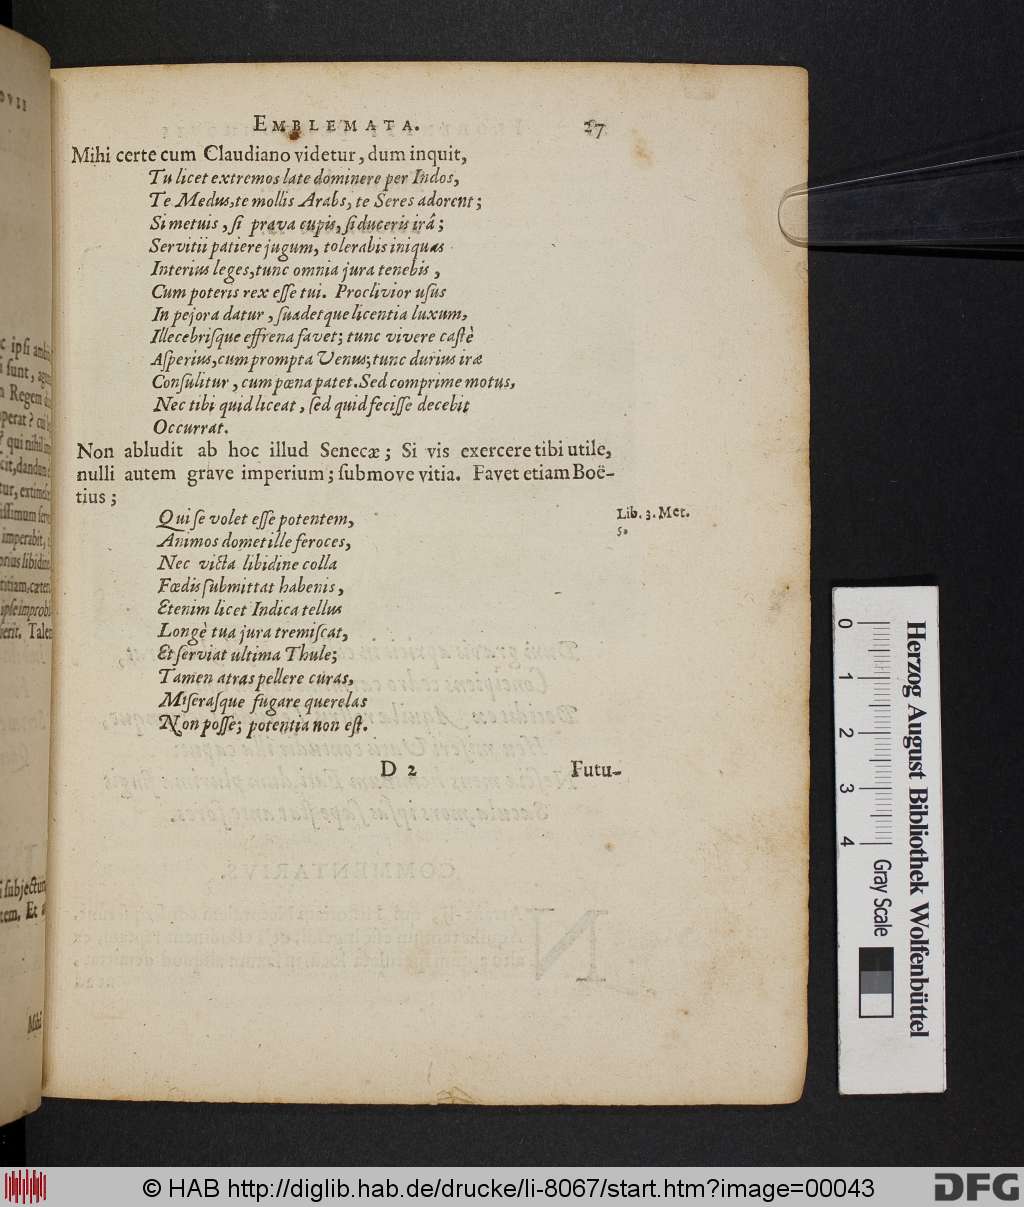 EMBLEMATA. 27
Mihi certe cum Claudiano videtur, dum inquit,
Tu licet extremos late dominere per Indos,
Te Medus, te mollis Arabs, te Seres adorent;
Si metuis, ſi prava cupis, ſi duceris irâ;
Servitii patiere jugum, tolerabis iniquas
Interius leges, tunc omnia jura tenebis,
Cum poteris rex eſſe tui. Proclivior uſus
In pejora datur, ſuadetque licentia luxum,
Illecebriſque effrena favet; tunc vivere caſtè
Aſperius, cum prompta Venus; tunc durius iræ
Conſulitur, cum pœna patet. Sed comprime motus,
Nec tibi quid liceat, ſed quid feciſſe decebit
Occurrat.
Non abludit ab hoc illud Senecæ; Si vis exercere tibi utile,
nulli autem grave imperium; ſubmove vitia. Favet etiam Boë-
tius;
Qui ſe volet eſſe potentem,
Lib. 3. Met.
5.
Animos domet ille feroces,
Nec victa libidine colla
Fœdis ſubmittat habenis,
Etenim licet Indica tellus
Longè tua jura tremiſcat,
Et ſerviat ultima Thule;
Tamen atras pellere curas,
Miſeraſque fugare querelas
Non poſſe; potentia non eſt.
D 2 Futu-
Herzog August Bibliothek Wolfenbüttel
0 1 2 3 4
Gray Scale
© HAB http://diglib.hab.de/drucke/li-8067/start.htm?image=00043
DFG